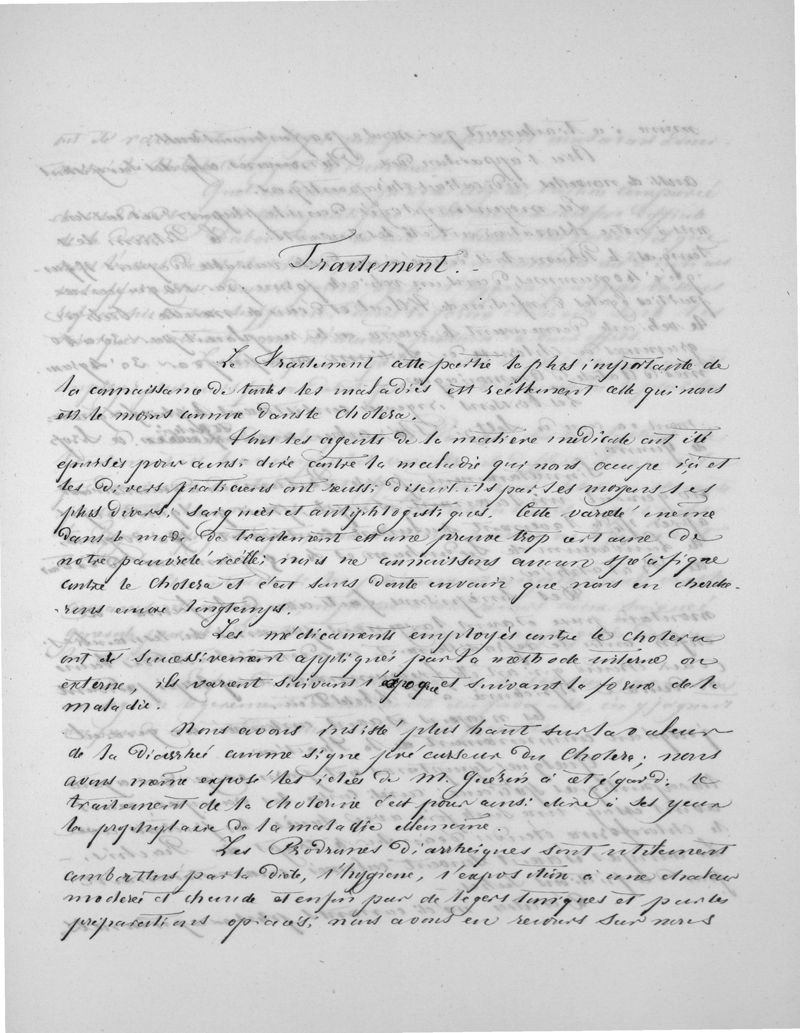 Traitement.
Le Traitement cette partie la plus importante de
la connaissance de toutes les maladies est réellement celle qui nous
est le moins connue dans le cholera.
Tous les agents de la matière médicale ont été
épuisés pour ainsi dire contre la maladie qui nous occupe ici et
les divers praticiens ont réussi disent-ils par les moyens les
plus divers; saignées et antiphlogistiques. Cette varieté même
dans le mode de traitement est une preuve trop certaine de
notre pauvreté réelle; nous ne connaissons aucun spécifique
contre le cholera et c'est sans doute en vain que nous en cherche-
-rons encore longtemps.
Les médicaments employés contre le cholera
ont été successivement appliqués par la méthode interne ou
externe, ils varient suivant l'époque et suivant la forme de la
maladie.
Nous avons insisté plus haut sur la valeur
de la diarrhée comme signe précurseur du Cholera; nous
avons même exposé les idées de M. Guérin à cet égard; le
traitement de la cholerine c'est pour ainsi dire à ses yeux
la prophylaxie de la maladie elle même.
Les Prodromes diarrheiques sont utilement
combattus par la diète, l'hygiene, l'exposition à une chaleur
moderée et chaude et enfin par de légers toniques et par les
préparations opiacés; nous avons eu recours sur nous